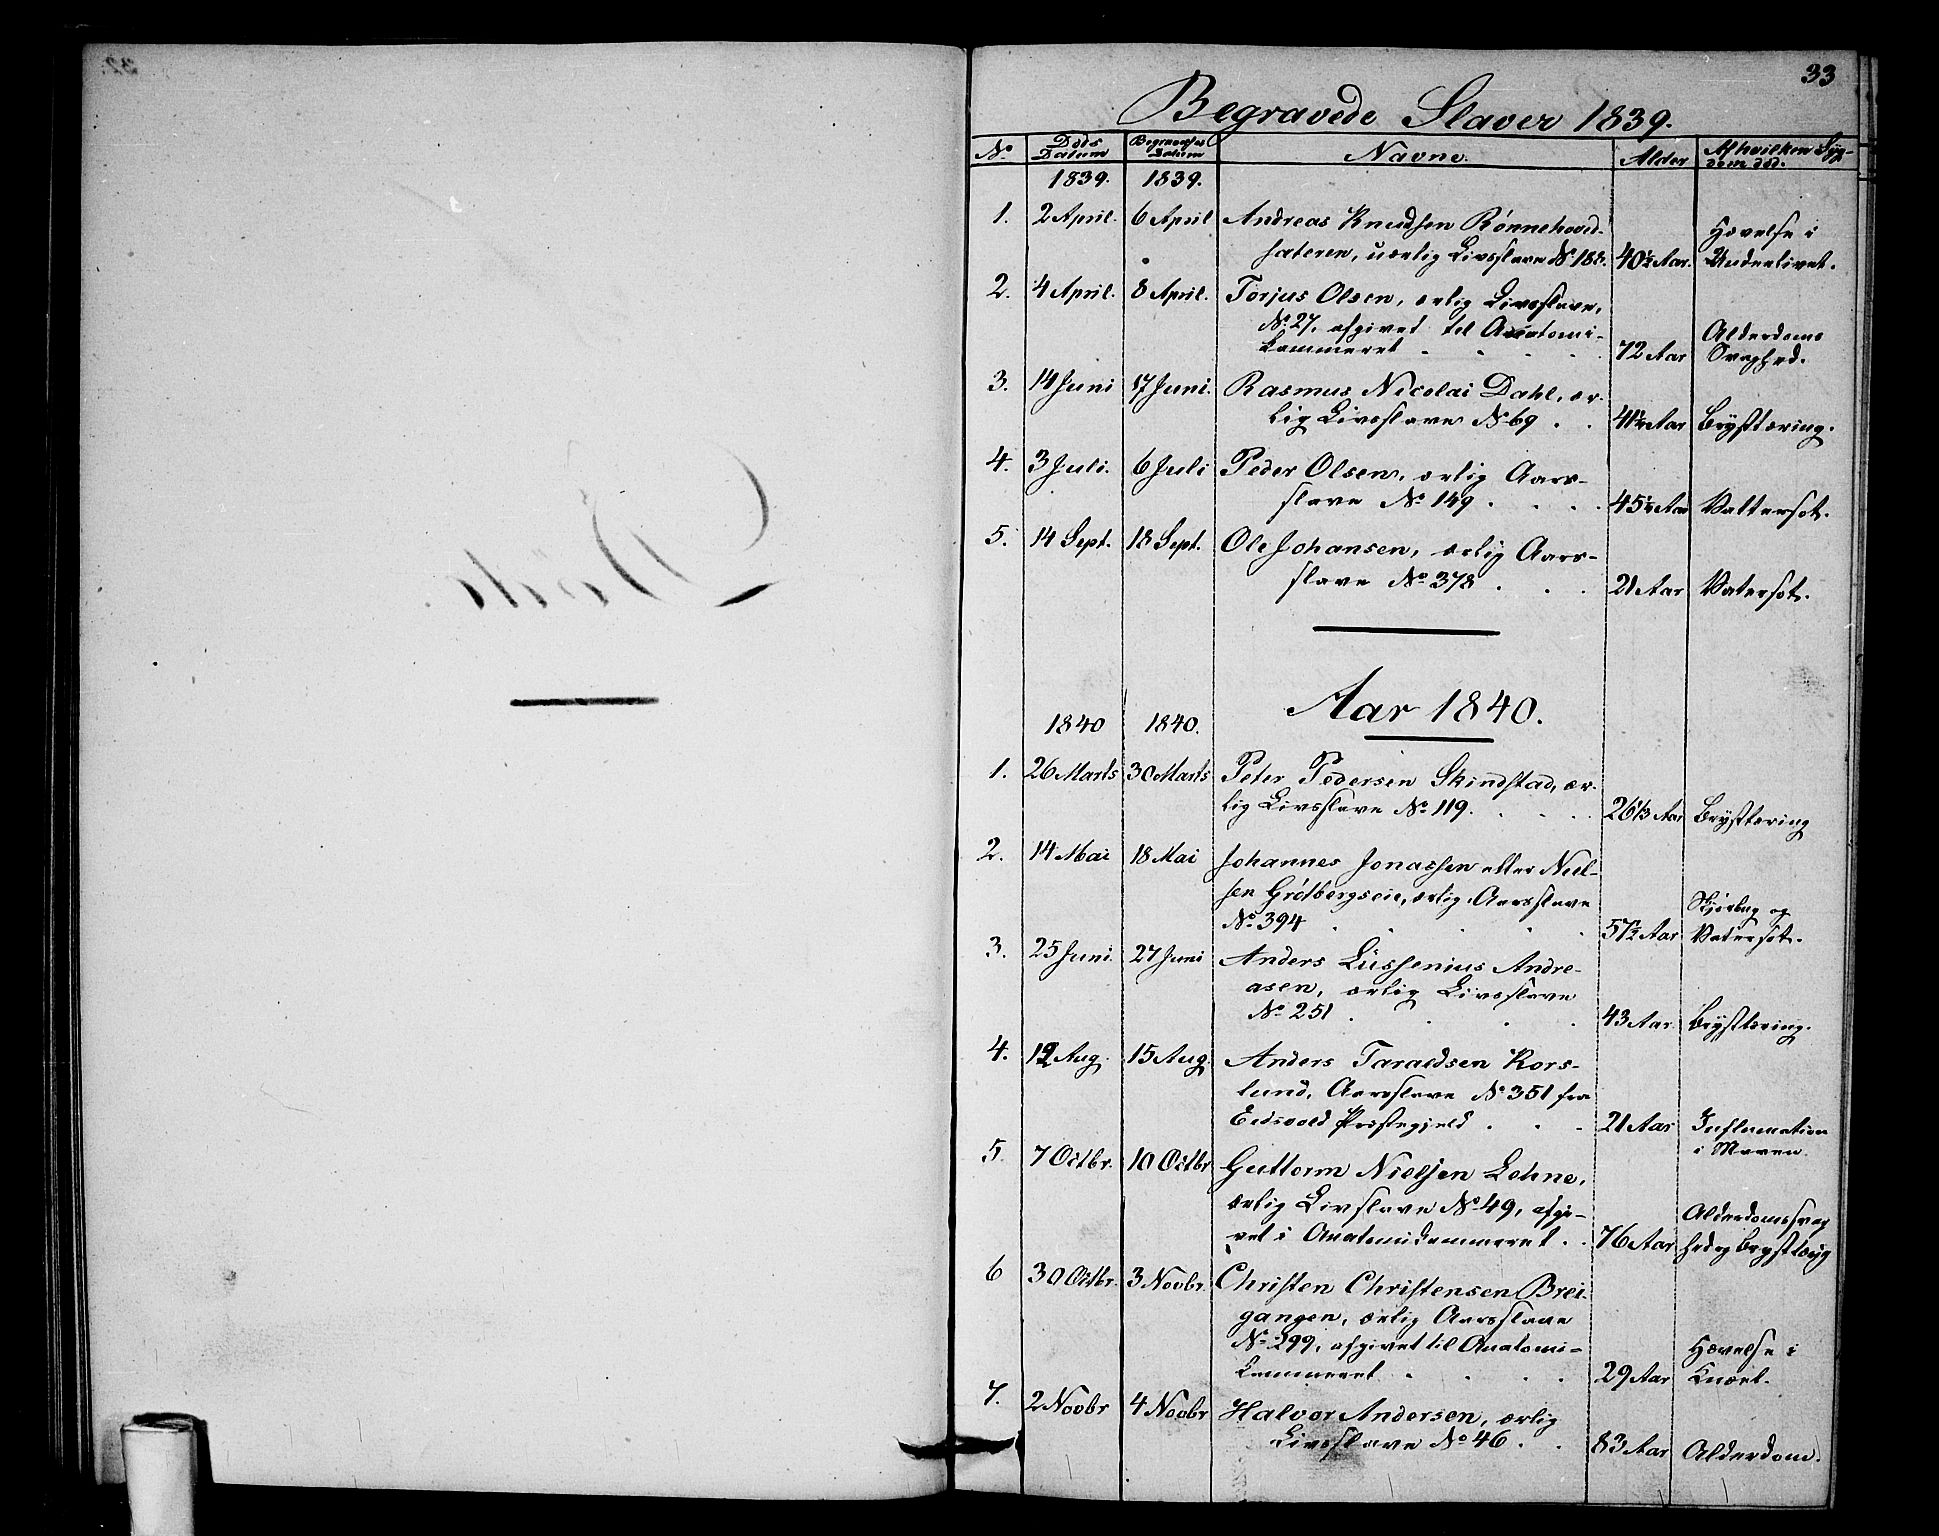 33
Begravede Slaver 1839.
No
Døds Datum
Begravelses Datum
Navne.
Alder
Af hvilken Syg-
dom død.
1839. 1839.
1. 2 April. 6 April Andreas Knudsen Rønnehoved-
sateren, uærlig Livsslave No 188. 40½ Aar. Hævelse i Underlivet.
2. 4 April. 8 April. Torjus Olsen, ærlig Livsslave,
No 27, afgivet til Anatomi-
kammeret . . . . 72 Aar Alderdoms Svaghed.
3. 14 Juni 17 Juni. Rasmus Nicolai Dahl, ær-
lig Livsslave No 69 . . 41¼ Aar Brysttæring.
4. 3 Juli. 6 Juli Peder Olsen, ærlig Aars-
slave No 149 . . . . 45¼ Aar Vattersot.
5. 14 Sept. 18 Sept. Ole Johansen, ærlig Aars-
slave No 378 . . . 21 Aar Vatersot.
Aar 1840.
1840 1840.
1. 26 Marts 30 Marts Peter Pedersen Skindstad, ær-
lig Livsslave No 119. . . . . 26⅓ Aar Brysttæring
2. 14 Mai 18 Mai Johannes Jonassen eller Niel-
sen Grötbergseie, ærlig Aarsslave
No 394 . . . . . 57½ Aar Skjørbug og Vatersot.
3. 25 Juni. 27 Juni Anders Lüssenius Andre-
asen, ærlig Livsslave
No 251 . . . . 43 Aar Brysttæring.
4. 12 Aug. 15 Aug. Anders Taraldsen Kors-
lund, Aarsslave No 351 fra
Eidsvold Præstegjeld . . . 21 Aar Inflamation i Maven.
5. 7 Octbr. 10 Octbr Guttorm Nielsen Lehne,
ærlig Livslave No 49, afgi-
vet i Anatomikammeret . . 76 Aar Alderdomssvag
hed og Brystsyg
6 30 Octbr. 3 Novbr. Christen Christensen Brei-
gangen, ærlig Aarsslave
No 299, afgivet til Anatomi-
kammeret . . . . 29 Aar Hævelse i Knæet.
7. 2 Novbr 4 Novbr Halvor Andersen, ærlig
Livsslave No 46 . . 83 Aar Alderdom.